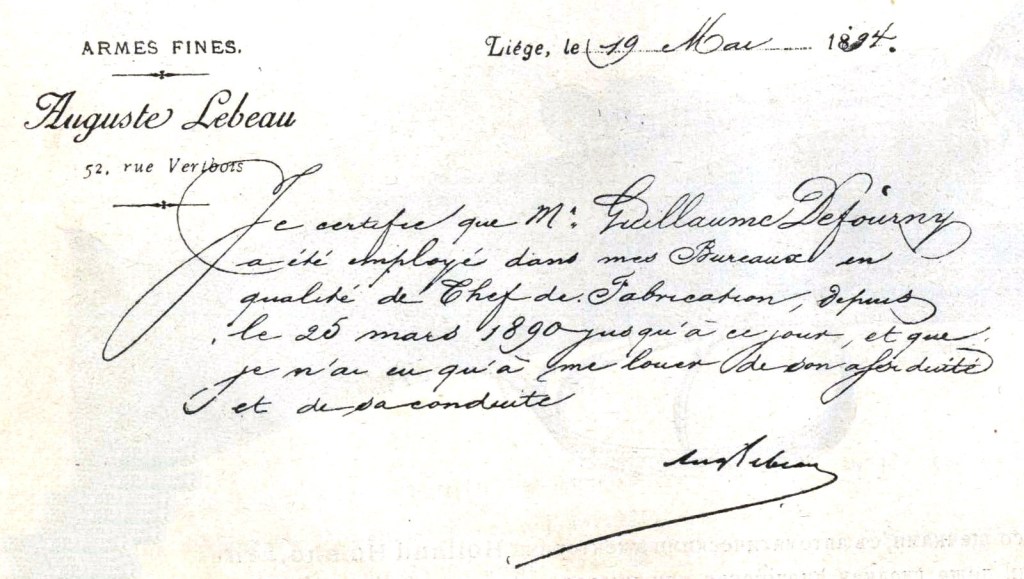 ARMES FINES.
Auguste Lebeau
52, rue Vertbois
Liége, le 19 Mai 1894.
Je certifie que Mr Guillaume Defourny
a été employé dans mes Bureaux en
qualité de Chef de Fabrication, depuis
le 25 mars 1890 jusqu'à ce jour, et que
je n'ai eu qu'à me louer de son assiduité
et de sa conduite
Aug Lebeau